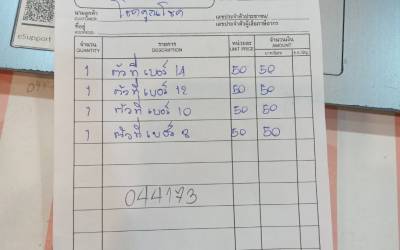 นามลูกค้า โชคคูณโชค
CUSTOMER
เลขประจำตัวประชาชน/
ที่อยู่
ADDRESS
เลขประจำตัวผู้เสียภาษีอากร
จำนวน รายการ หน่วยละ จำนวนเงิน
QUANTITY DESCRIPTION UNIT PRICE AMOUNT
1 เบอร์ 14 50 50
1 เบอร์ 12 50 50
1 เบอร์ 10 50 50
1 เบอร์ 8 50 50
044173
eSupport